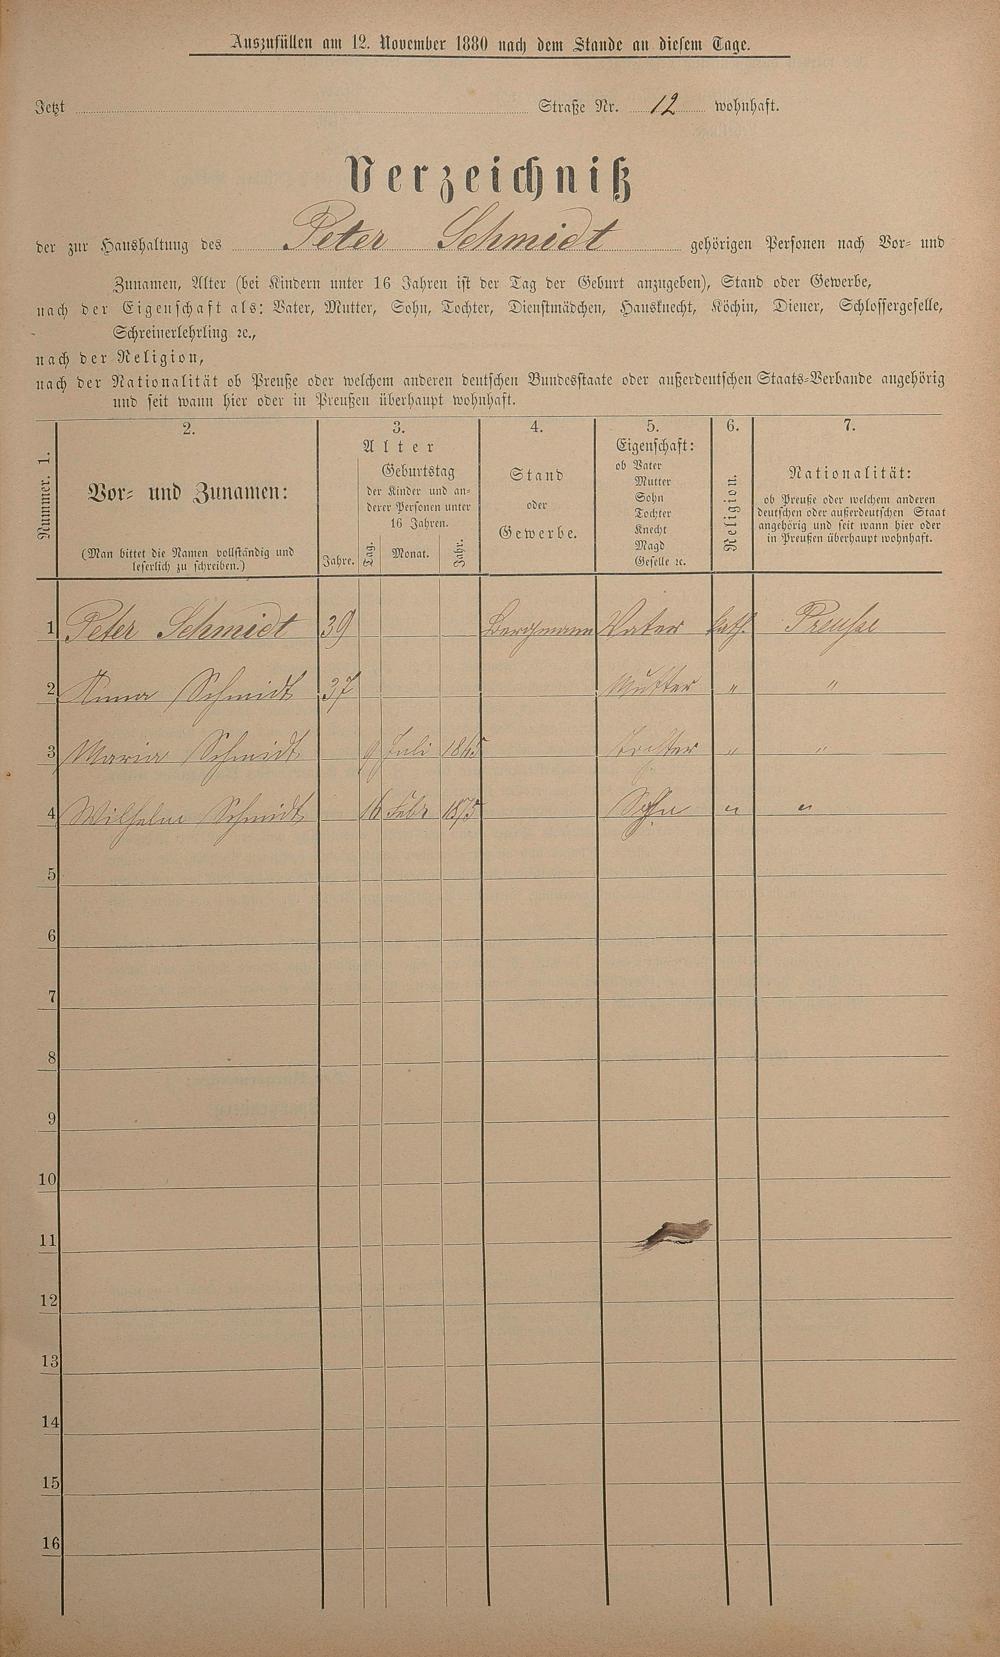 Auszufüllen am 12. November 1880 nach dem Stande an diesem Tage.
Jetzt Straße Nr. 12 wohnhaft.
Verzeichniß
der zur Haushaltung des Peter Schmidt gehörigen Personen nach Vor- und
Zunamen, Alter (bei Kindern unter 16 Jahren ist der Tag der Geburt anzugeben), Stand oder Gewerbe,
nach der Eigenschaft als: Vater, Mutter, Sohn, Tochter, Dienstmädchen, Hausknecht, Köchin, Diener, Schlossergeselle,
Schreinerlehrling ꝛc.,
nach der Religion,
nach der Nationalität ob Preuße oder welchem anderen deutschen Bundesstaate oder außerdeutschen Staats-Verbande angehörig
und seit wann hier oder in Preußen überhaupt wohnhaft.
Nummer. 1.
2.
Vor- und Zunamen:
(Man bittet die Namen vollständig und
leserlich zu schreiben.)
3.
Alter
Jahre.
Geburtstag
der Kinder und an-
derer Personen unter
16 Jahren.
Tag. Monat. Jahr.
4.
Stand
oder
Gewerbe.
5.
Eigenschaft:
ob Vater
Mutter
Sohn
Tochter
Knecht
Magd
Geselle ꝛc.
6.
Religion.
7.
Nationalität:
ob Preuße oder welchem anderen
deutschen oder außerdeutschen Staat
angehörig und seit wann hier oder
in Preußen überhaupt wohnhaft.
1 Peter Schmidt 39 Bergmann Vater kath. Preuße
2 Anna Schmidt 37 Mutter " "
3 Maria Schmidt 9 Juli Tochter " "
4 Wilhelm Schmidt 16 Febr 1875 Sohn " "
5
6
7
8
9
10
11
12
13
14
15
16